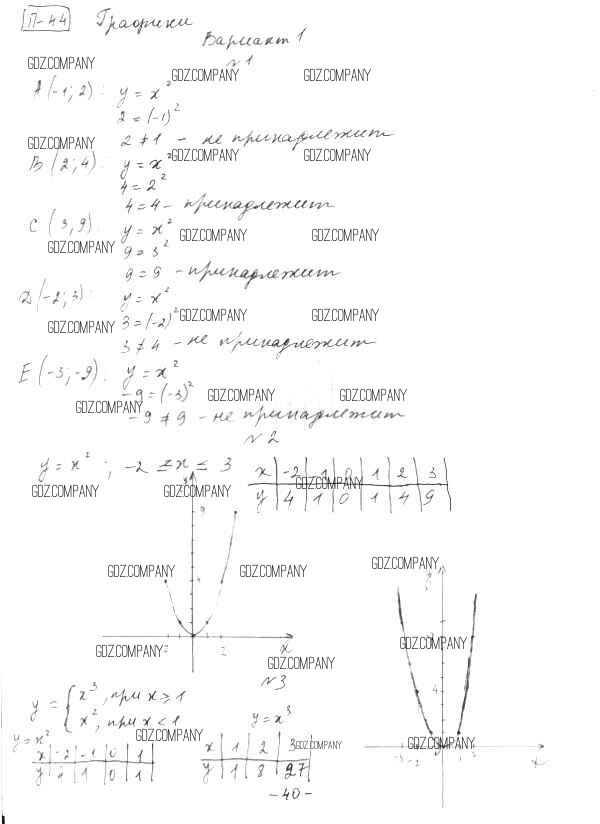 П-44 Графики
Вариант 1
N1
GDZ.COMPANY GDZ.COMPANY GDZ.COMPANY
A(-1; 2): y = x²
2 = (-1)²
2 ≠ 1 - не принадлежит
GDZ.COMPANY GDZ.COMPANY GDZ.COMPANY
B(2; 4): y = x²
4 = 2²
4 = 4 - принадлежит
C(3, 9): y = x²
GDZ.COMPANY GDZ.COMPANY GDZ.COMPANY
9 = 3²
9 = 9 - принадлежит
D(-2; 3): y = x²
GDZ.COMPANY GDZ.COMPANY GDZ.COMPANY
3 = (-2)²
3 ≠ 4 - не принадлежит
E(-3; -9): y = x²
-9 = (-3)²
GDZ.COMPANY GDZ.COMPANY GDZ.COMPANY
-9 ≠ 9 - не принадлежит
N2
y = x²; -2 ≤ x ≤ 3
x | -2 | -1 | 0 | 1 | 2 | 3
y | 4 | 1 | 0 | 1 | 4 | 9
GDZ.COMPANY GDZ.COMPANY GDZ.COMPANY
9
GDZ.COMPANY GDZ.COMPANY GDZ.COMPANY
4
GDZ.COMPANY GDZ.COMPANY
-2 2 x
GDZ.COMPANY
N3
y = { x³, при x ≥ 1
x², при x < 1
GDZ.COMPANY
y = x²
x | -2 | -1 | 0 | 1
y | 4 | 1 | 0 | 1
y = x³
x | 1 | 2 | 3
y | 1 | 8 | 27
GDZ.COMPANY
y
4
GDZ.COMPANY
-3 -2 x
- 40 -